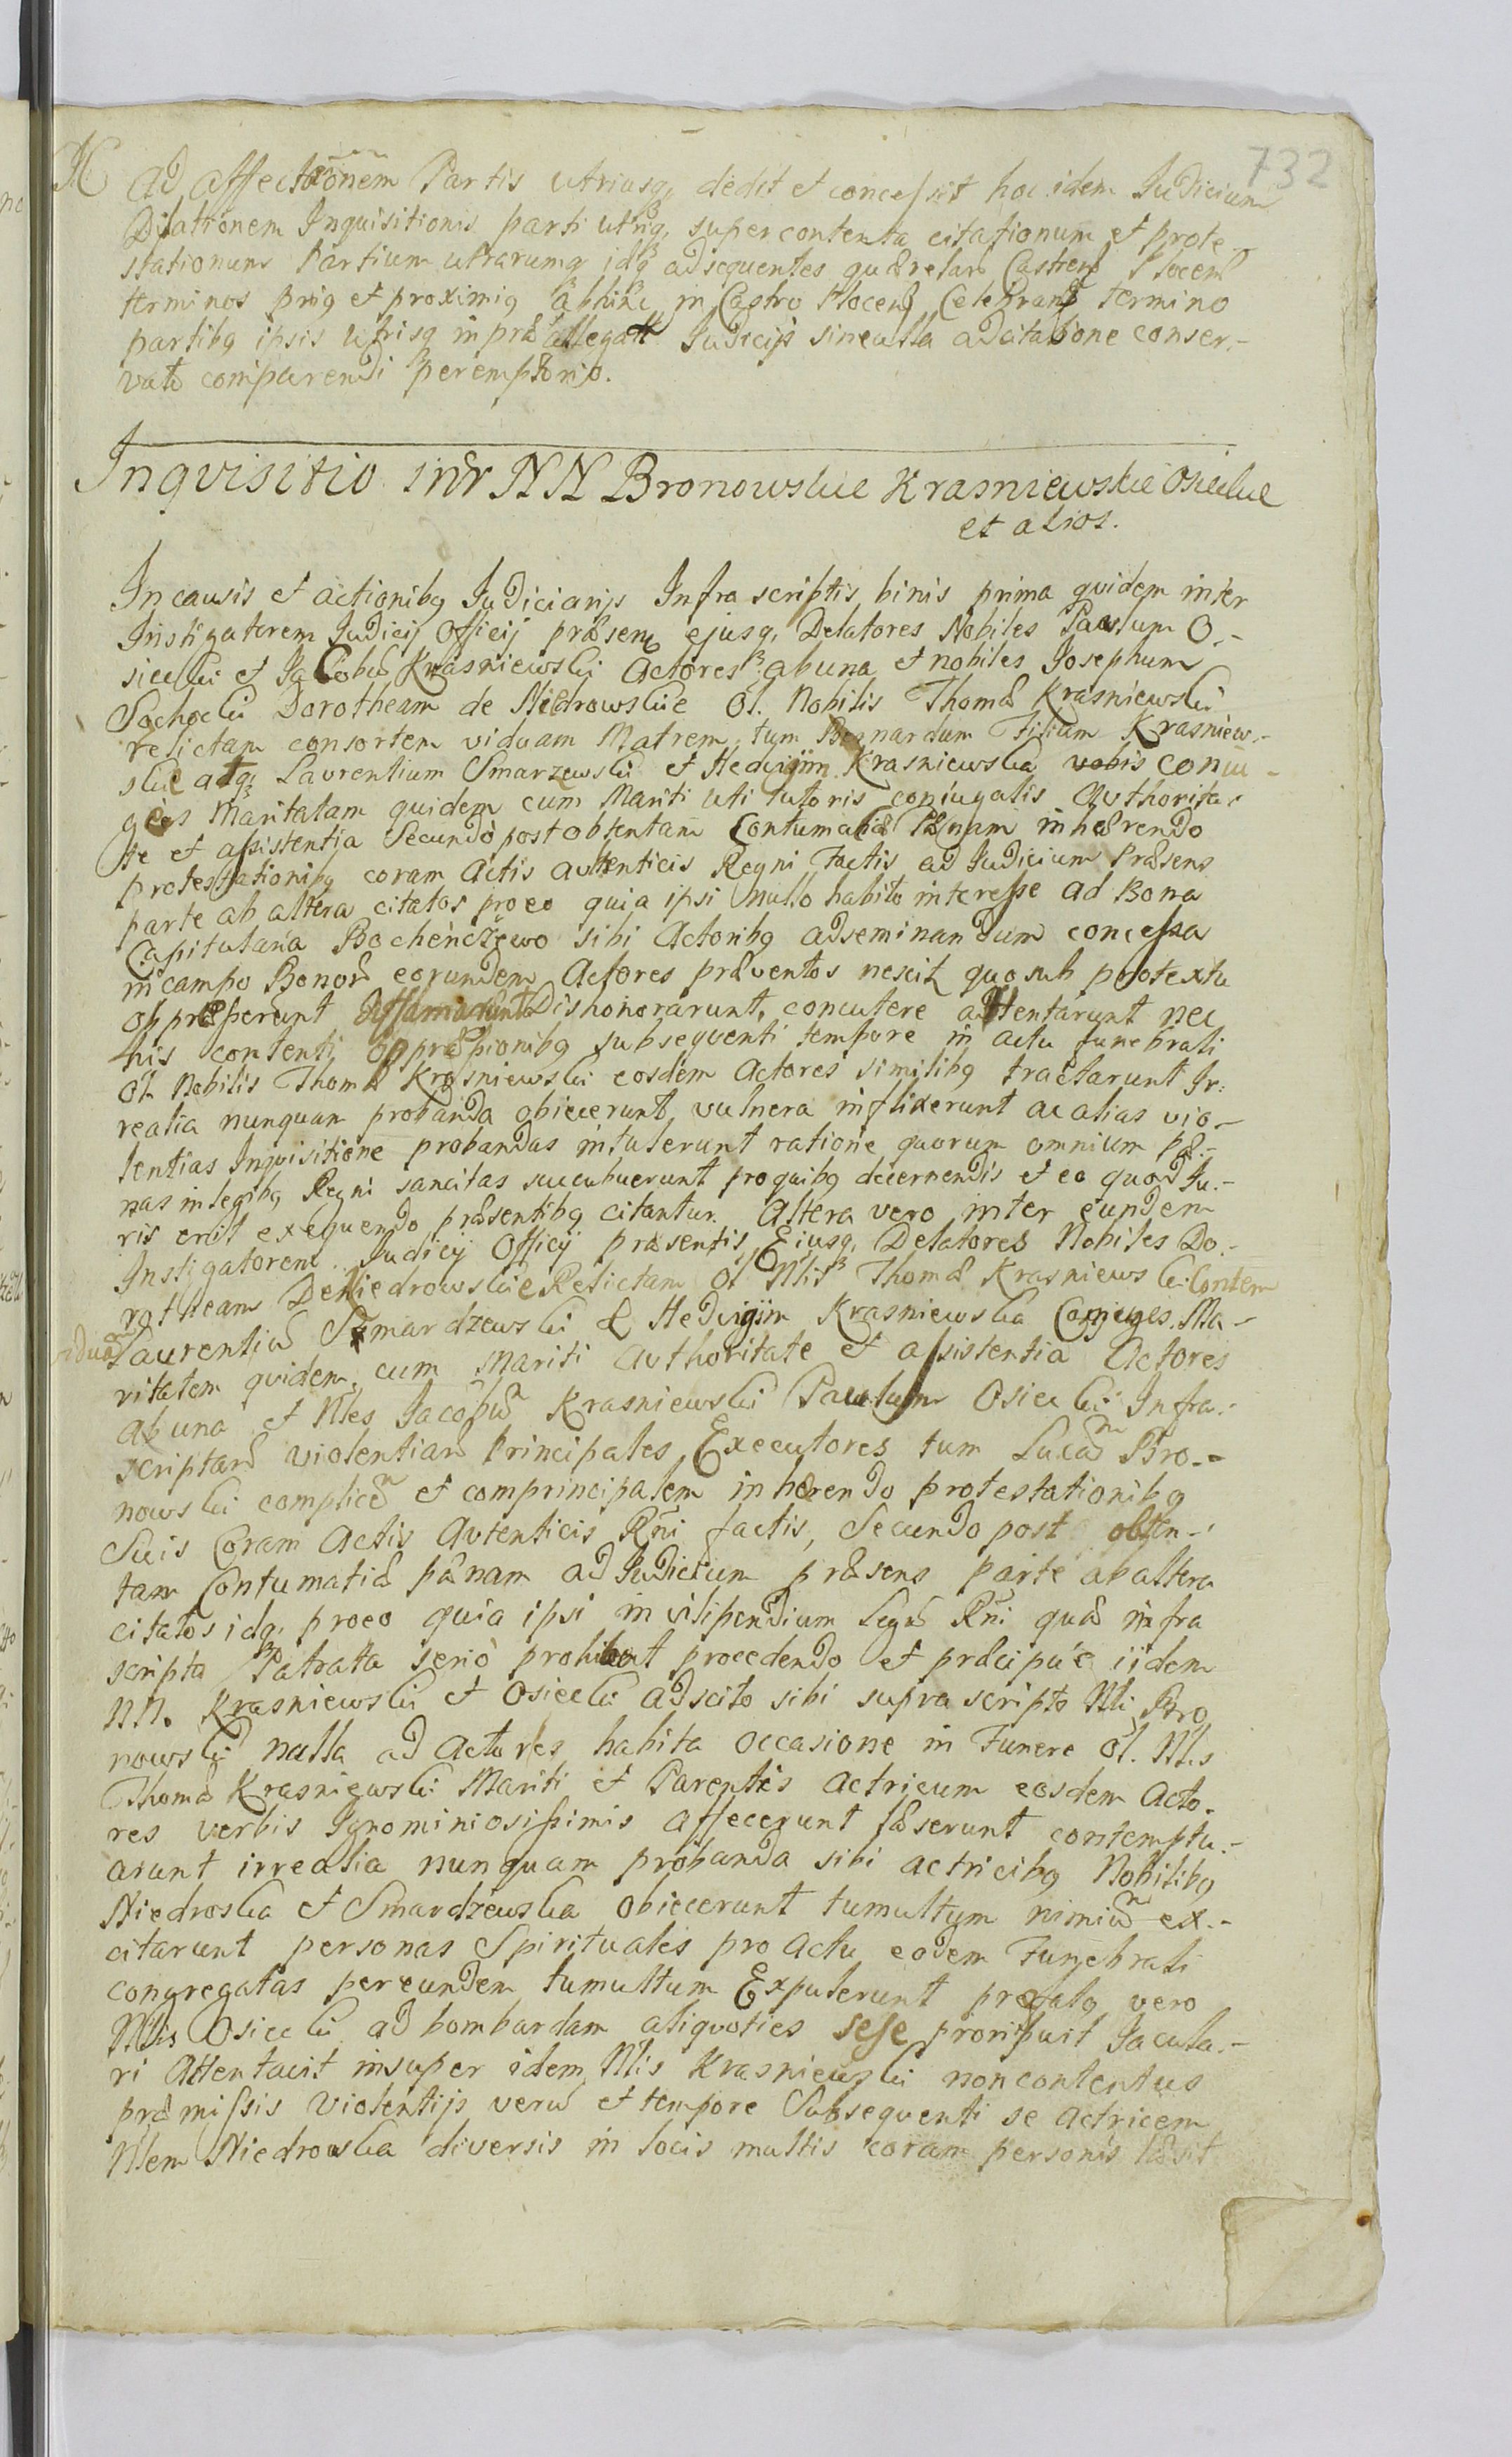 732
Ad Affectãõnem Partis utriusq, dedit et concessit hoc idem Judicium
Dilationem Inquisitionis parti utriq, super contenta citationum et prote-
stationum Partium utrarumq idq ad sequentes quærelarũ Castren Plocen
terminos priq et proximiq abhinc in Castro Plocen Celebran termino
partibq ipsis utrisq in præallegatt Judicijs sine ulla adcitatione conser.-
vato comparendi peremptorio.
Inqvisitio intr NN Bronowskie Krasniewskie Osieckie
et alios.
In causis et actionibq Judiciarijs Infra scriptis binis prima quidem inter
Instigatorem Judicij Officij præsens ejusq, Delatores Nobiles Paulum O.-
siecki et Jacobũ Krasniewski Actores ab una et nobiles Josephum
Sochocki Dorotheam de Niedrowskie Ol. Nobilis Thomæ Krasniewski
relictam consortem viduam Matrem, tum Bernardum Filium Krasniew.-
skie atq, Laurentium Smarzewski et Hedvigim Krasniewska conju-
ges Maritatam quidem cum Mariti uti tutoris conjugalis Authorita-
te et assistentia Secundò post obtentam Contumatiæ Pænam inhærendo
protestationibq coram Actis autenticis Regni Factis ad Judicium Præsens
parte ab altera citatos pro eo quia ipsi nullo habito interesse ad Bona
Capitularia Bochenczewo sibi Actoribq ad seminandum concessa
in campo Bonorũ eorundem Actores præventos nescit quo sub prætextu
oppresserunt diffamarunt Dishonorarunt, concutere attentarunt nec
his contenti oppressionibq subsequenti tempore in actu funebrali
Ol. Nobilis Thomæ Krasniewski eosdem Actores similibq tractarunt Ir:
realia nunquam probanda obiecerunt, vulnera inflixerunt ac alias vio.-
lentias Inquisitione probandas intulerunt ratione quorum omnium pæ.-
nas in legibq Regni sancitas succubuerunt pro quibq decernendis et eo quod Ju.-
ris erit exequendo præsentibq citantur. Altera vero inter eundem
Instigatorem Judicij Officij præsentis Ejusq, Delatores Nobiles Do.-
rotheam De Niedrowskie Relictam Ol Nlis Thomæ Krasniewski Contem
viduã Laurentiũ Smardzewski & Hedvigim Krasniewska Conjuges. Ma-
ritatam quidem cum Mariti Authoritate et assistentia Actores
ab una et Nles Jacobũ Krasniewski Paulum Osiecki Infra.-
scriptarũ violentiarũ Principales Executores tum Lucam Bro.-
nowski complicem et comprincipalem inhærendo protestationibq
Suis Coram Actis Autenticis Rñi factis, Secundo post obten-
tam Contumatiæ pænam ad Judicium præsens parte ab altera
citatos idq, pro eo quia ipsi in vilipendium Legũ Rñi quæ infra
scripta Patrata seriò prohibent procedendo et præcipuè iidem
NN. Krasniewski et Osiecki adscito sibi supra scripto Nli Bro
nowski nulla ad Actores habita occasione in Funere Ol. Nlis
Thomæ Krasniewski Mariti et Parentis Actricum eosdem Acto-
res verbis Ignominiosissimis affecerunt læserunt contemptu.-
arunt irrealia nunquam probanda sibi actricibq Nobilibq
Niedroska et Smardzewska obiecerunt tumultum nimiũ ex.-
citarunt personas Spirituales pro Actu eodem Funebrali
congregatas per eundem tumultum Expulerunt præfatq vero
Nlis Osiecki ad bombardam aliquoties sese proripuit Jacula.-
ri Attentavit insuper idem Nlis Krasniewski non contentus
præmissis violentijs verũ et tempore Subsequenti se Actricem
Nlem Niedroska diversis in locis multis coram personis læsit